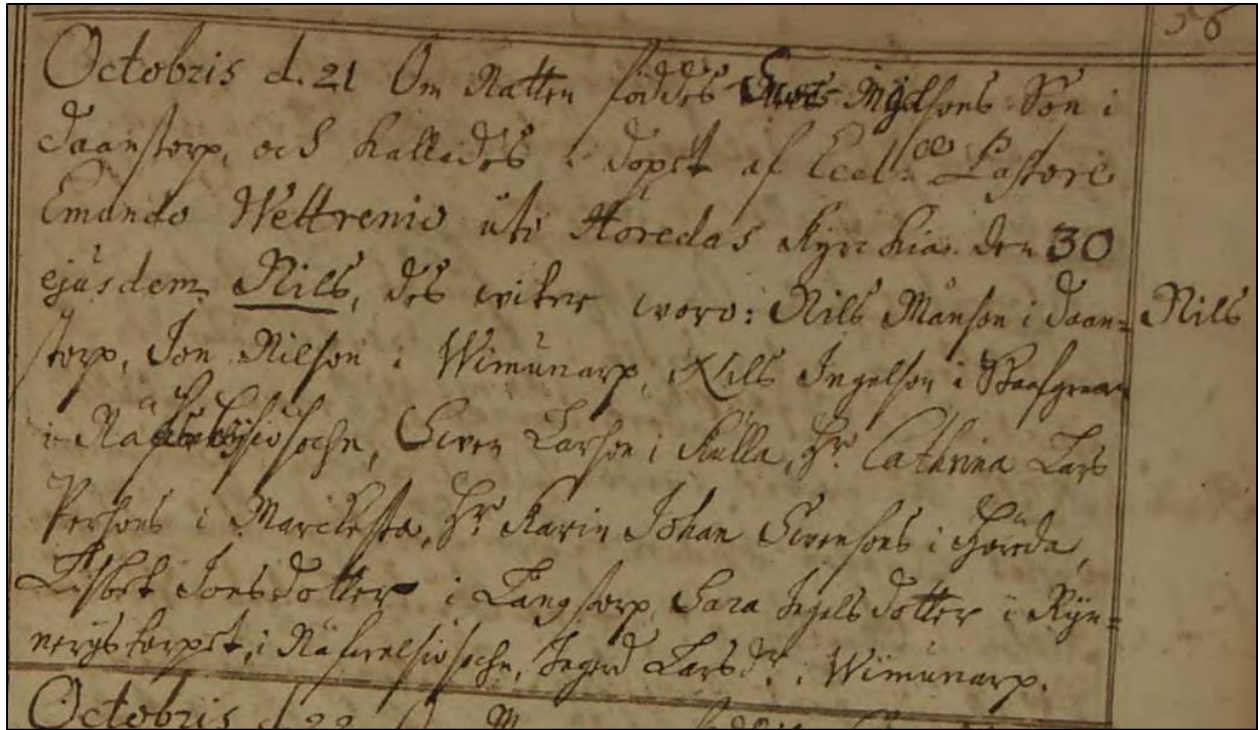 56
Octobris d. 21 Om Natten föddes Ingelsons Son i
Daanstorp, och kallades i dopet af Eccl:æ Pastore
Emundo Wettrenio uti Horedas Kyrckia den 30
ejusdem Nils, des witner woro: Nils Månson i Daan=
Nils
storp, Jon Nilson i Wimunarp, Nils Ingelson i
i Sven Larson i Kulla, Hr. Cathrina Lars
Persons i Marckesta, Hr. Karin Johan Svensons i Horeda,
Lisbet Jonsdotter i Långstorp, Sara Ingelsdotter i Ryn=
nerystorpet, i Ingerd Larsdr. i Wimunarp.
Octobris d. 22